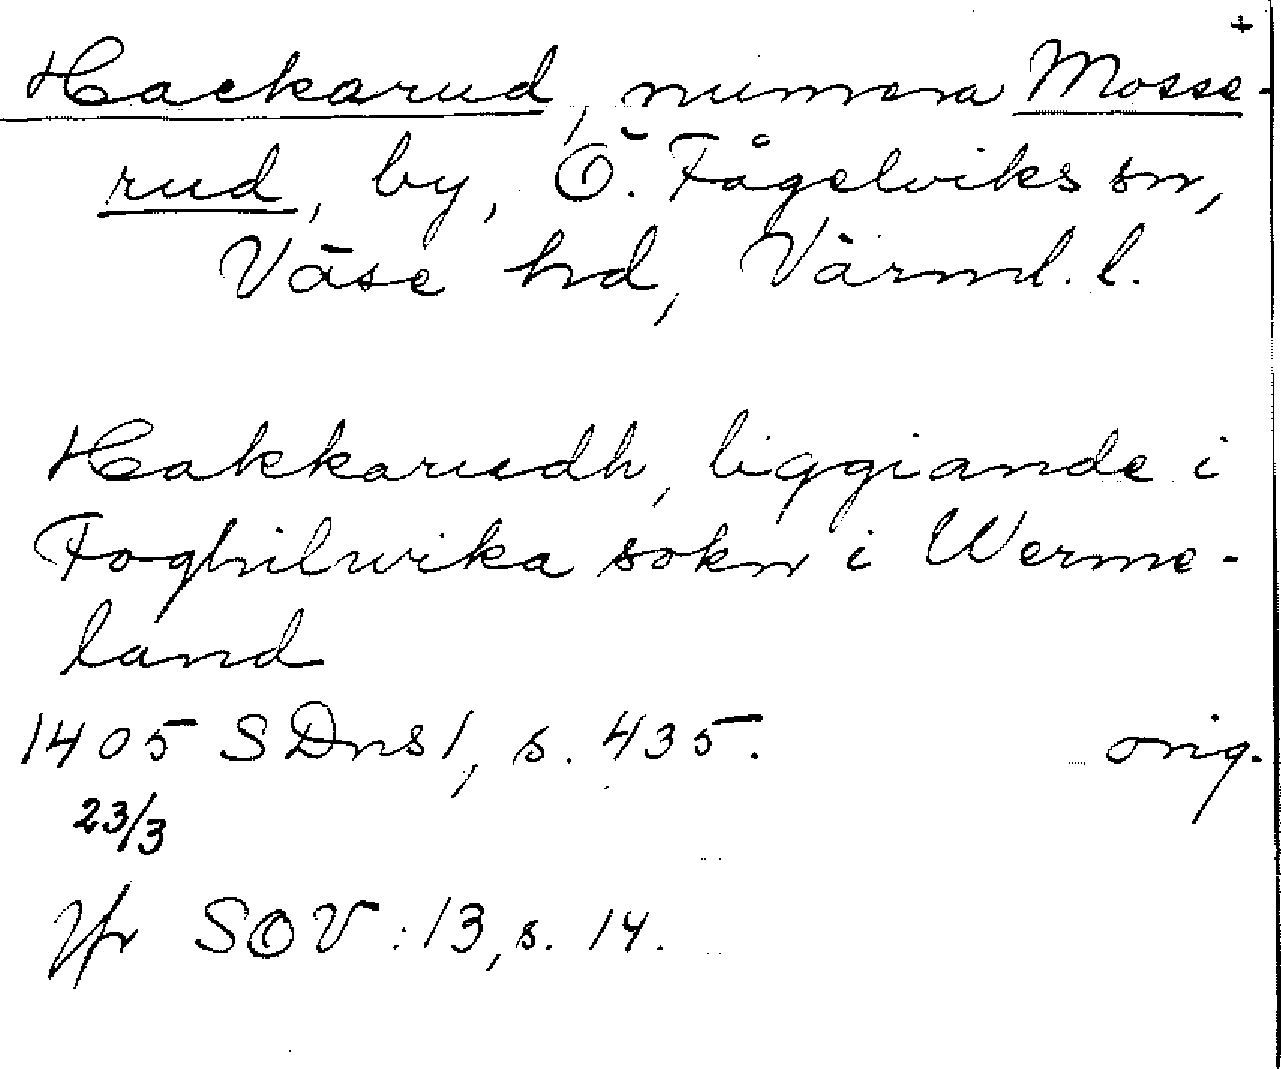 +
Hackarud, numera Mosse-
rud, by, Ö. Fågelviks sn,
Väse hd, Värml. l.
Hakkarudh, liggiande i
Foghilwika sokn i Werme-
land
1405 SDns1, s. 435. orig.
23/3
Jfr SOV:13, s. 14.